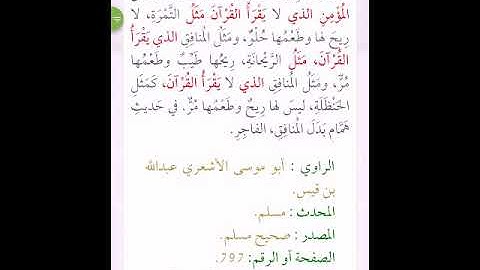 المُؤْمِنِ الذي لا يَقْرَأُ القُرْآنَ مَثَلُ التَّمْرَةِ، لا
رِيحَ لها وطَعْمُها حُلْوٌ، ومَثَلُ المُنافِقِ الذي يَقْرَأُ
القُرْآنَ، مَثَلُ الرَّيْحانَةِ، رِيحُها طَيِّبٌ وطَعْمُها
مُرٌّ، ومَثَلُ المُنافِقِ الذي لا يَقْرَأُ القُرْآنَ، كَمَثَلِ
الحَنْظَلَةِ، ليسَ لها رِيحٌ وطَعْمُها مُرٌّ. في حَديثِ
هَمَّام بَدَلَ المُنافِقِ، الفاجِرِ.
الراوي : أبو موسى الأشعري عبدالله
بن قيس.
المحدث : مسلم.
المصدر : صحيح مسلم.
الصفحة أو الرقم: 797.